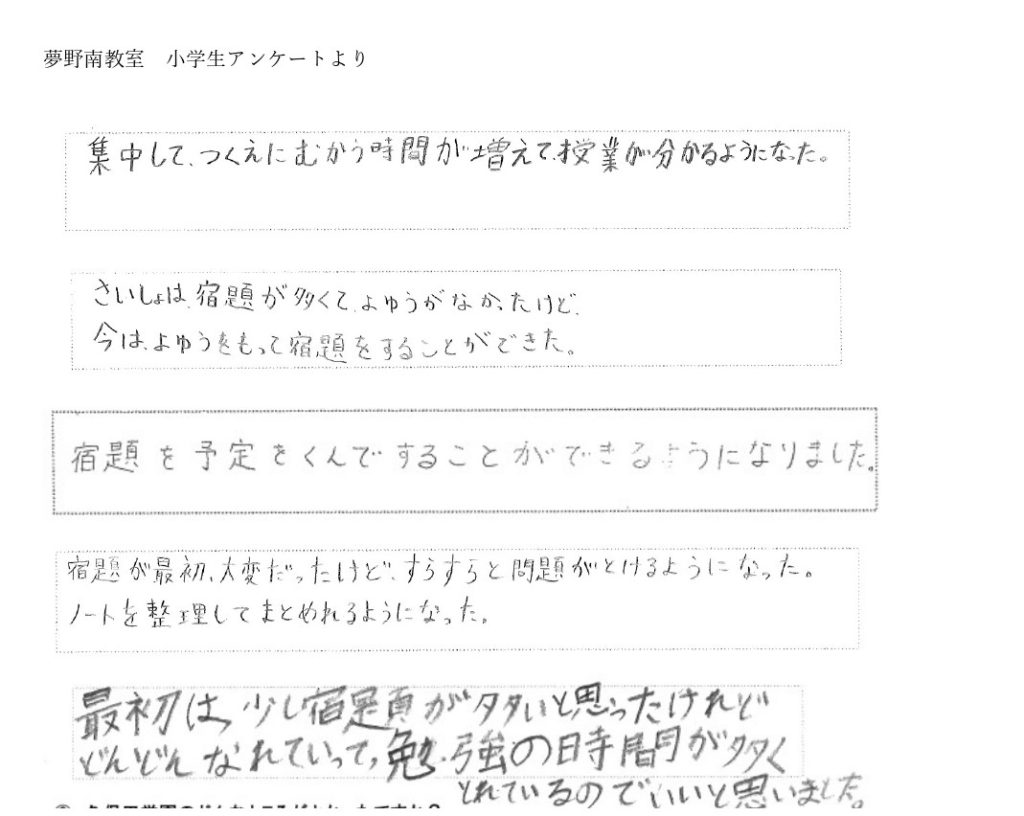 夢野南教室　小学生アンケートより
集中して、つくえにむかう時間が増えて、授業が分かるようになった。
さいしょは、宿題が多くて、よゆうがなかったけど、
今は、よゆうをもって宿題をすることができた。
宿題を予定をくんですることができるようになりました。
宿題が最初、大変だったけど、すらすらと問題がとけるようになった。
ノートを整理してまとめれるようになった。
最初は、少し宿題が多いと思ったけれど
どんどんなれていって、勉強の時間が多く
とれているのでいいと思いました。